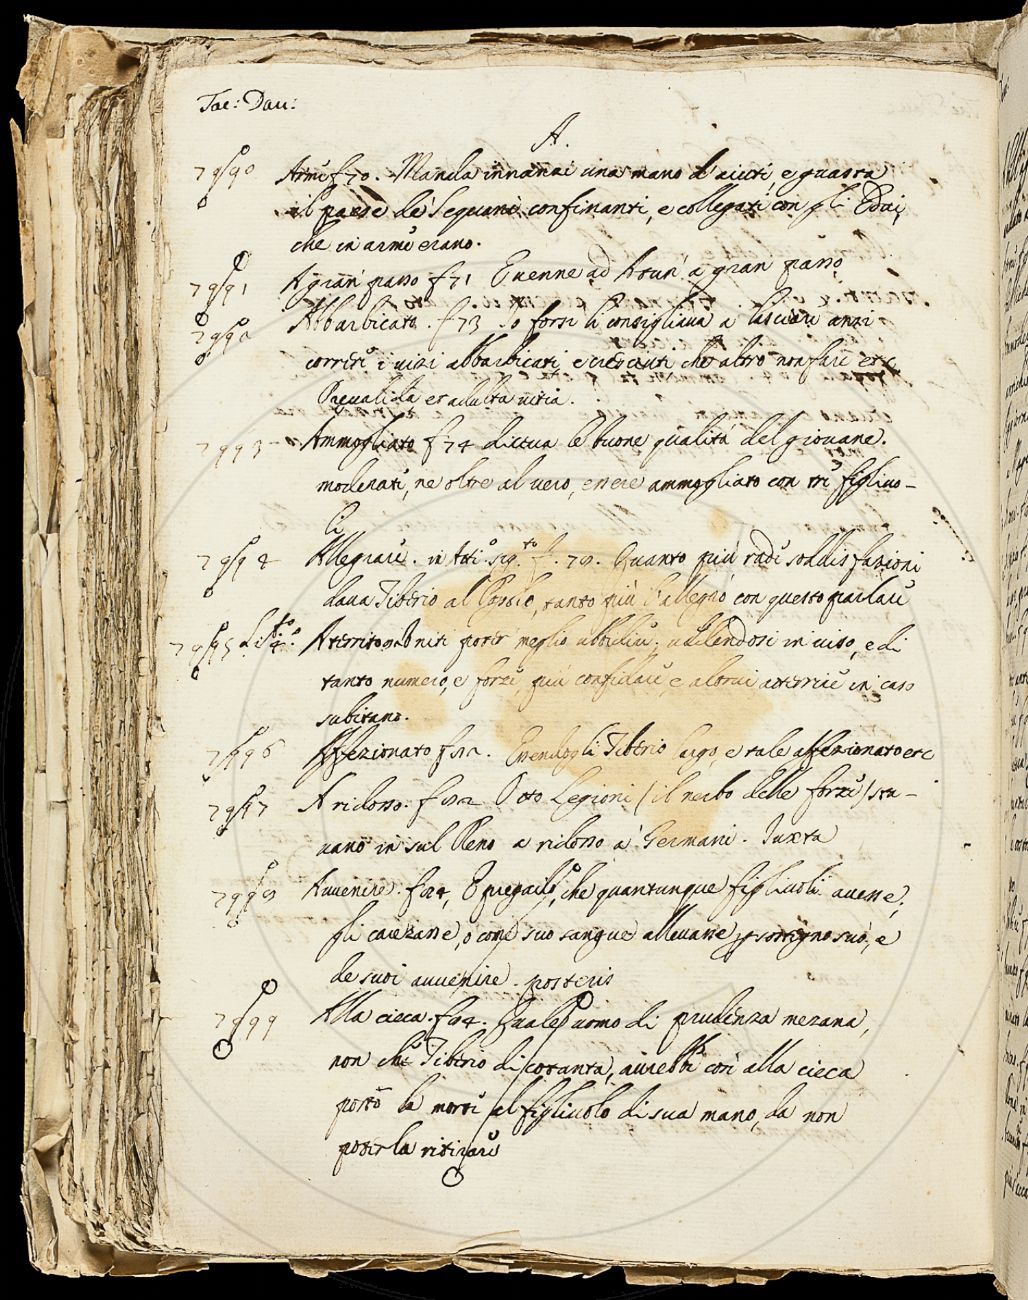 Tac: Dau:
A.
7990 Armi f 70. Manda innanzi una mano d'aiuti e guasta
il paese de Sequani confinanti, e collegati con gli Edui,
che in armi erano.
7991 A gran passo f 71 E venne ad Autun a gran passo
7992 Abbarbicato. f 73 Io forsi ti consigliava a lasciare anzi
correre i vizi abbarbicati e cresciuti che altro non fare etc
Praevalida et adulta vitia.
7993 - Ammogliato f 74 diceva le buone qualità del giovane.
moderati, ne oltre al vero, essere ammogliato con tre figliuo-
li
7994 Allegrare. f. 79. Quanto più radi soddisfazioni
dava Tiberio al Popolo, tanto più l'allegrò con questo parlare
7995 meglio ubbidire; vedendosi in viso, e di
tanto numero, e forze, più confidare, e altrui atterrire in caso
subitano.
7996 Affezionato f 82. Essendogli Tiberio largo, e tale affezionato etc
7997 A ridosso. f 82 Otto Legioni (il nerbo delle forze) sta-
vano in sul Reno a ridosso a' Germani. Juxta
7998 Avvenire. f 84, E pregaili, che quantunque figliuoli avesse,
gli carezzasse, o come suo sangue allevasse, e
de suoi avvenire. posteris
7999 Alla cieca. f 84. Quale uomo di prudenza mezana,
non che Tiberio di cotanta, avrebbe così alla cieca
porto la morte al figliuolo di sua mano, da non
poterla ritirare